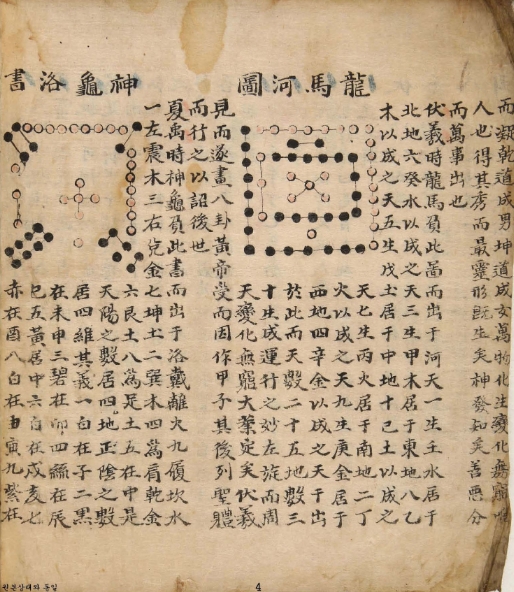 龍馬河圖
而凝乾道成男坤道成女萬物化生變化無窮惟
人也得其秀而最靈形既生矣神發知矣善惡分
而萬事出也
伏羲時龍馬負此啚而出于河天一生壬水居于
北地六癸水以成之天三生甲木居于東地八乙
木以成之天五生戊土居于中地十己土以成之
天七生丙火居于南地二丁
火以成之天九生庚金居于
西地四辛金以成之天于出
於此而天數二十五地數三
十生成運行之妙左旋而周
天變化無窮大矣伏羲
見而遂畫八卦黃帝受而因作甲子其後列聖軆
而行之以詔後世
神龜洛書
夏禹時神龜負此書而出于洛戴離火九履坎水
一左震木三右兌金七坤土二巽木四爲肩乾金
六艮土八爲足土五在中是
天陽之數居四地正陰之數
居四維其義一白在子二黑
在未申三碧在卯四綠在辰
巳五黃居中六白在戌亥七
赤在酉八白在丑寅九紫在
원본상태와 동일
4